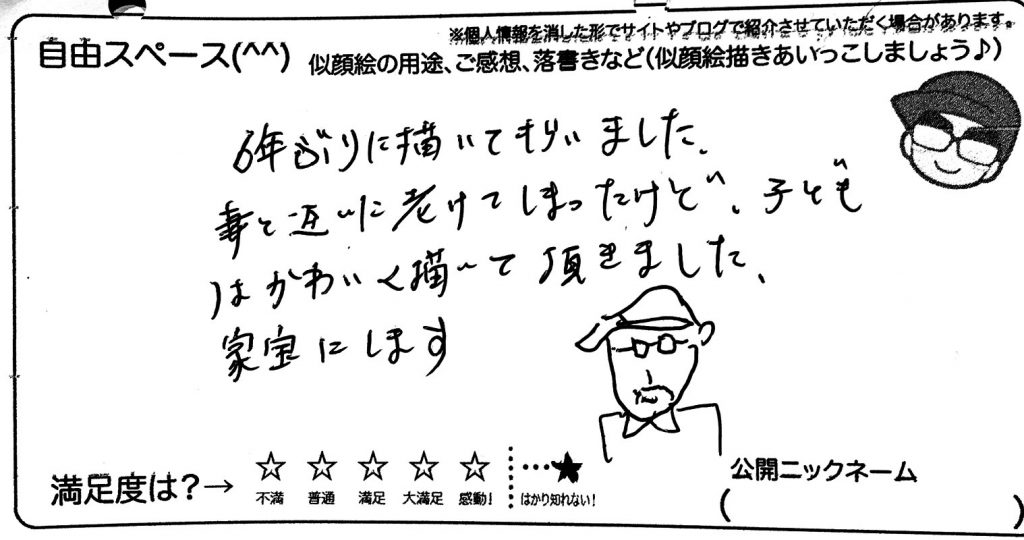 ※個人情報を消した形でサイトやブログで紹介させていただく場合があります。
自由スペース(^^) 似顔絵の用途、ご感想、落書きなど(似顔絵描きあいっこしましょう♪)
6年ぶりに描いてもらいました、
妻と互いに老けてしまったけど、子ども
はかわいく描いて頂きました、
家宝にします
満足度は?→ ☆ ☆ ☆ ☆ ☆ …★
不満 普通 満足 大満足 感動! はかり知れない!
公開ニックネーム
( )